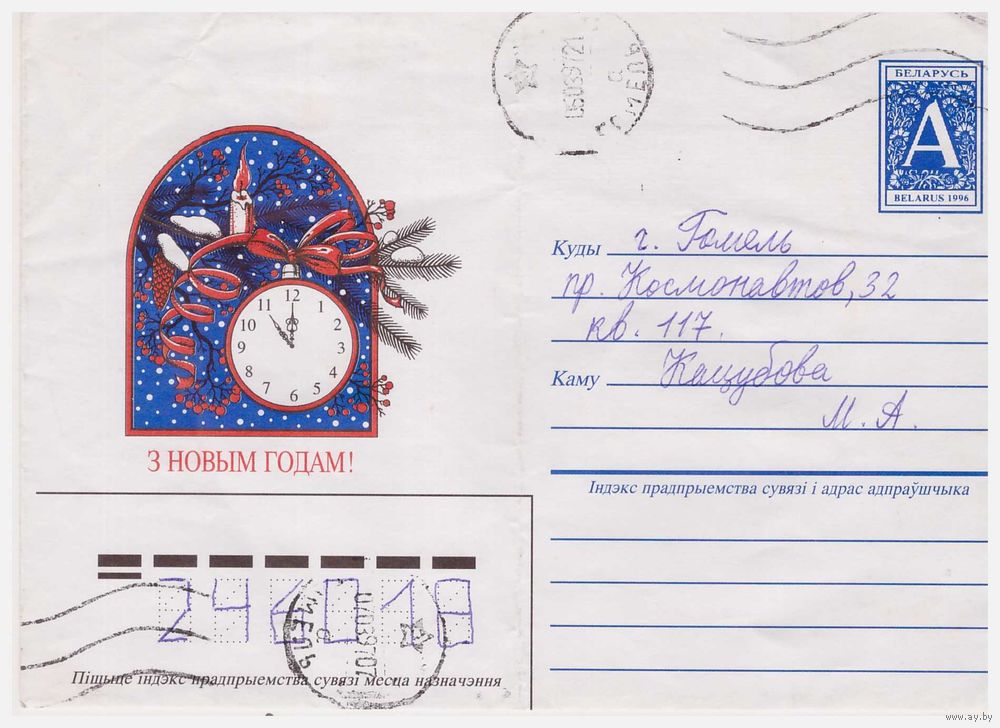 ГОМЕЛЬ
06039721
БЕЛАРУСЬ
А
BELARUS 1996
Куды г. Гомель
пр. Космонавтов, 32
кв. 117.
Каму Кацубова
М. А.
12
1
2
3
4
5
6
7
8
9
10
11
З НОВЫМ ГОДАМ!
Індэкс прадпрыемства сувязі і адрас адпраўшчыка
246019
07039707
Пішыце індэкс прадпрыемства сувязі месца назначэння
www.ay.by